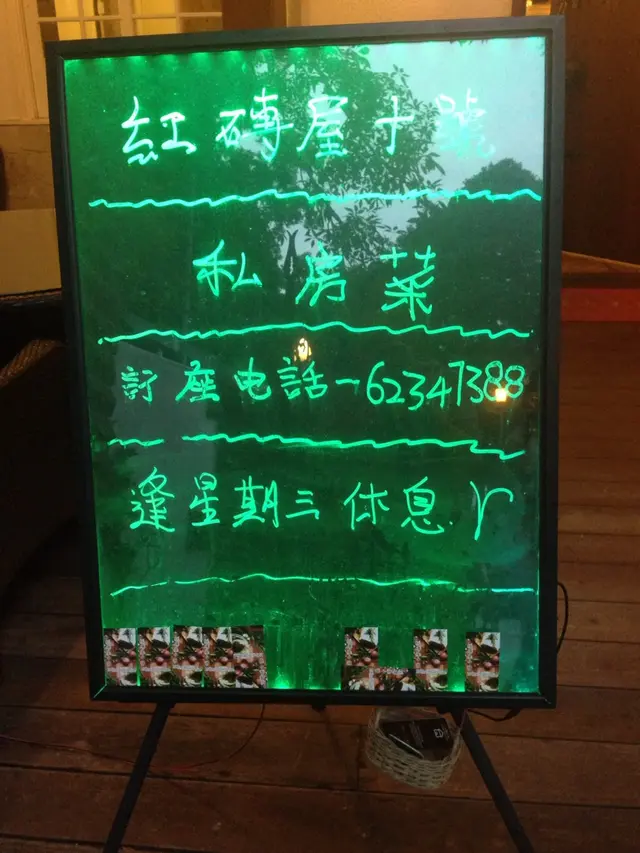 紅磚屋十號
私房菜
訂座电話-62347388
逢星期三休息